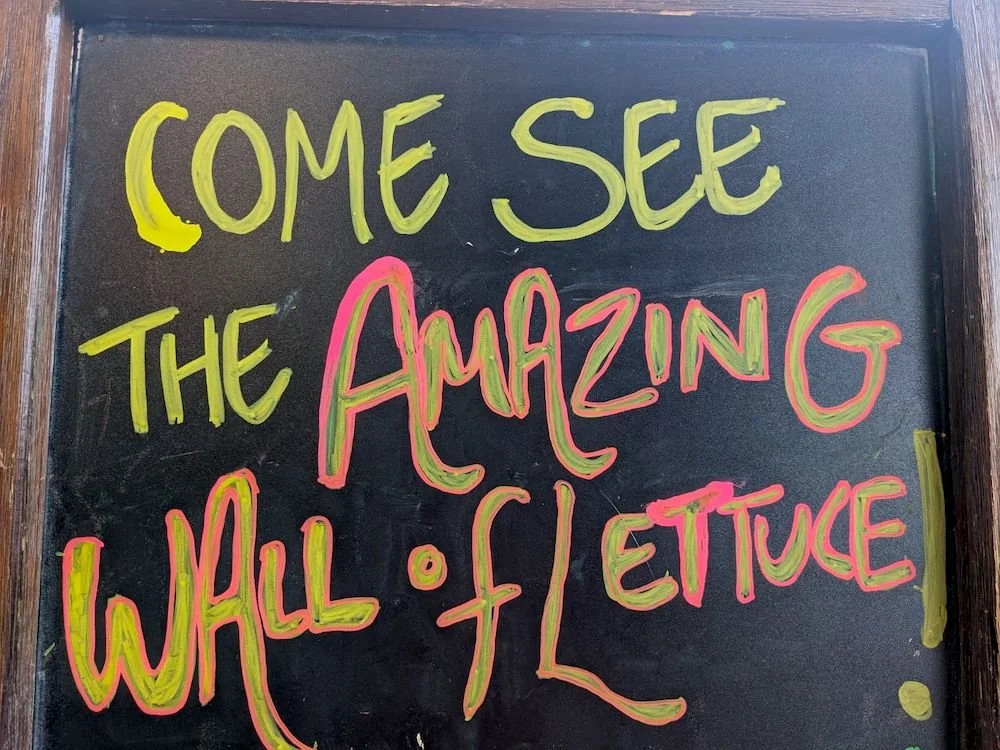 COME SEE
THE AMAZING
WALL of LETTUCE!